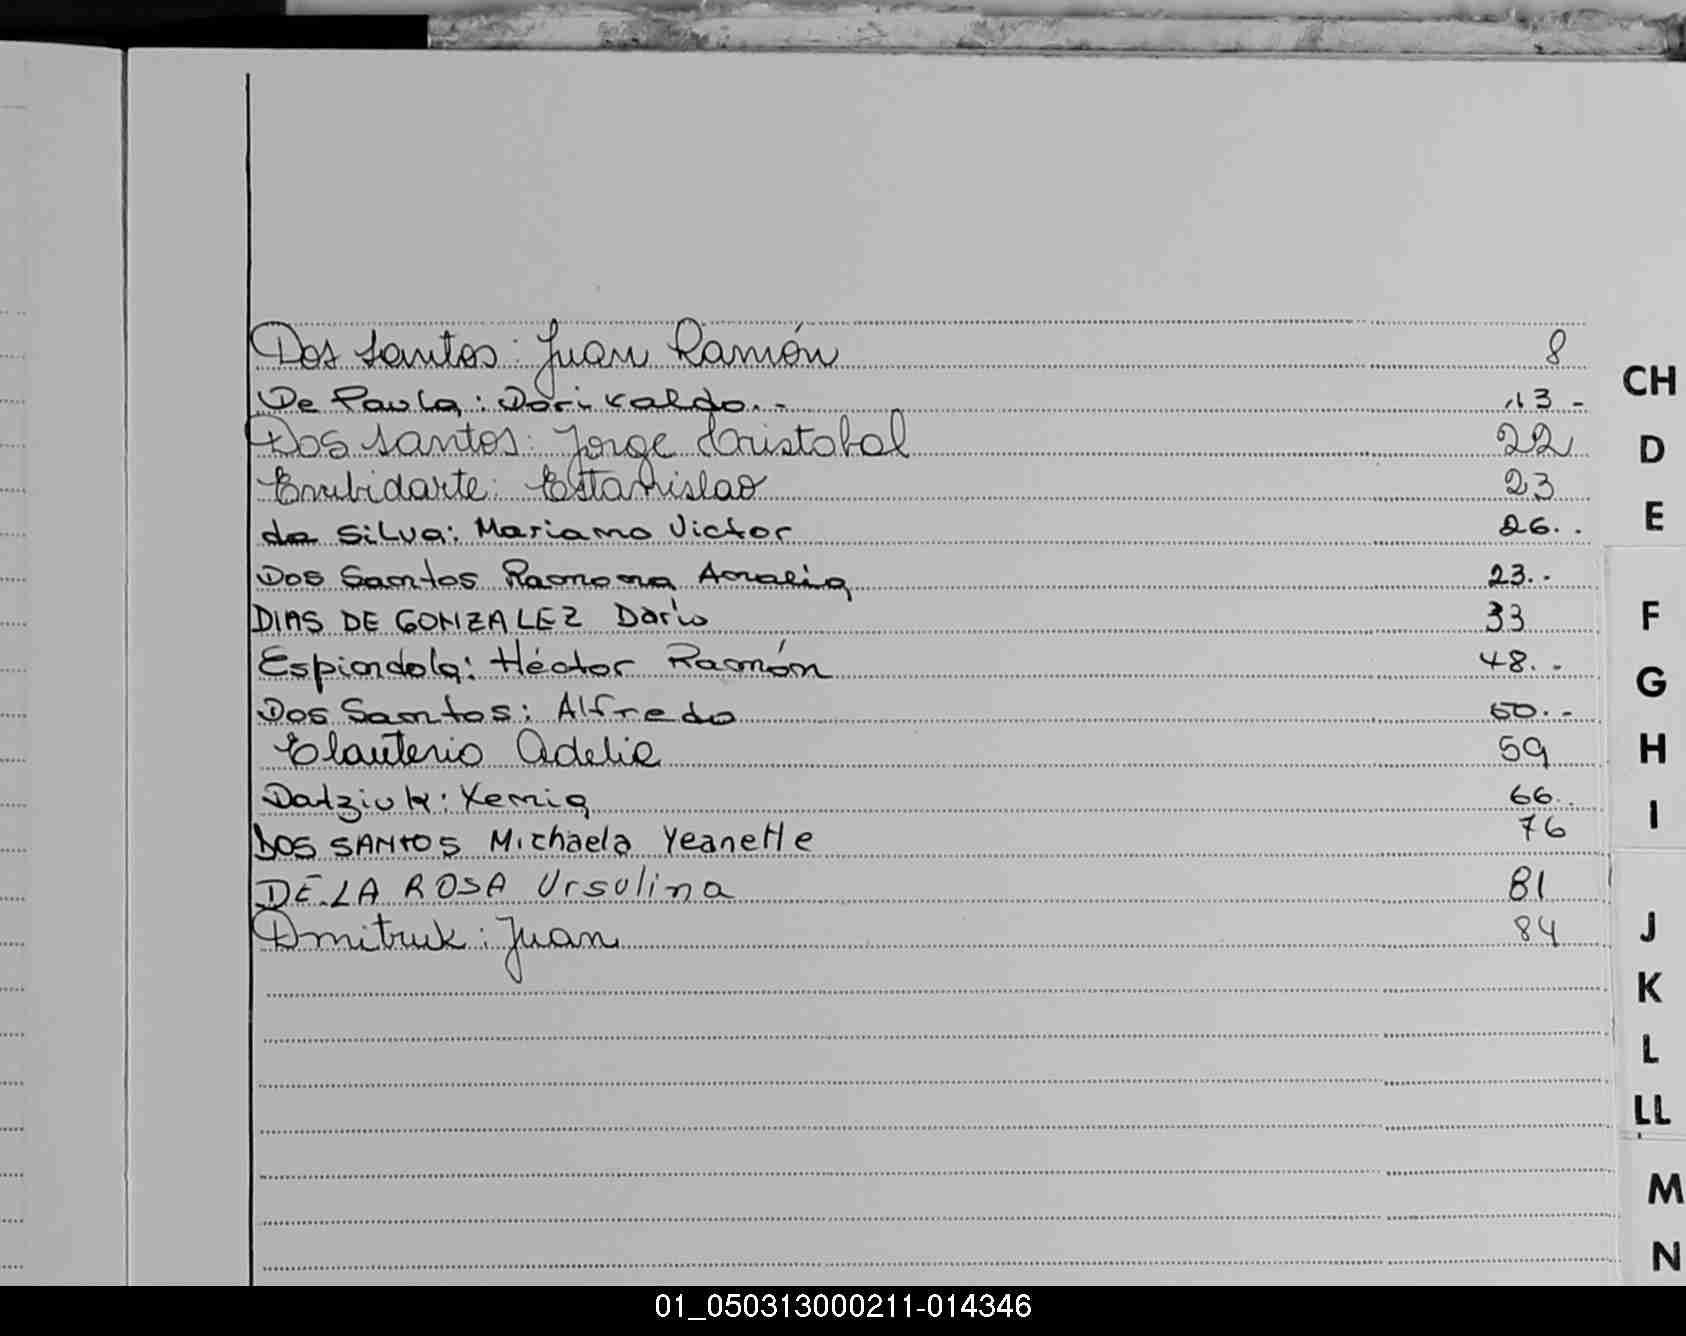 Dos Santos: Juan Ramón 8
CH
De Paula: Dorivaldo.- 13-
Dos Santos: Jorge Cristobal 22
D
Enrubidarte: Estanislao 23
E
da Silva: Mariano Victor 26..
Dos Santos Ramona Amalia 23.-
DIAS DE GONZALEZ Darío 33
F
Espiondola: Héctor Ramón 48.-
G
Dos Santos: Alfredo 50.-
Elauterio Adelia 59
H
Datziuk: Xenia 66..
I
DOS SANTOS Michaela Yeanette 76
DE LA ROSA Ursulina 81
Dmitruk: Juan 84
J
K
L
LL
M
N
01_050313000211-014346